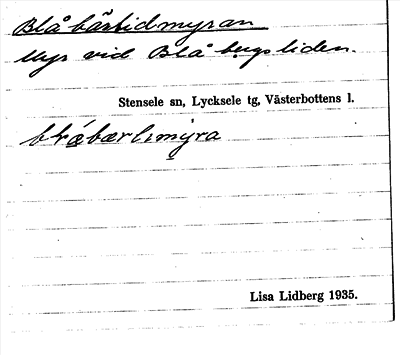 Blåbärlidmyran
Myr vid Blåbergsliden.
Stensele sn, Lycksele tg, Västerbottens l.
Lisa Lidberg 1935.